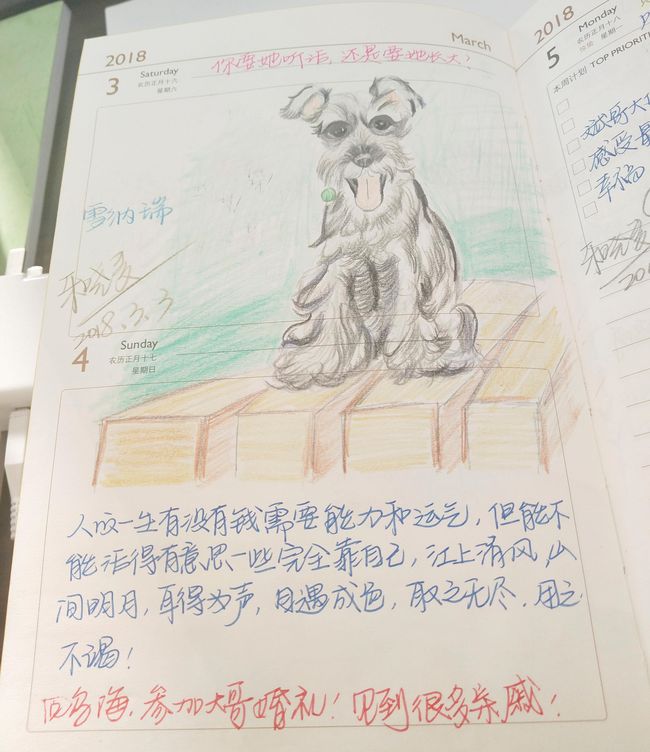 2018 March
你要她听话,还是要她长大?
3 Saturday
农历正月十六
星期六
雪纳瑞
2018.3.3
4 Sunday
农历正月十七
星期日
人的一生有没有钱需要能力和运气,但能不
能活得有意思一些完全靠自己,江上清风,山
间明月,耳得为声,目遇成色,取之无尽,用之
不谒!
参加大哥婚礼!见到很多亲戚!
2018
5 Monday
农历正月十八
星期一
本周计划 TOP PRIORITIE
感受
幸福